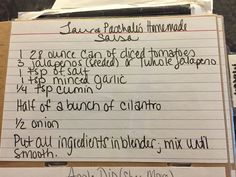 Laura Paschale's Homemade
Salsa
1 28 ounce can of diced tomatoes
3 jalapeños (seeded) or 1 whole jalapeno
1 tsp of salt
1 tsp minced garlic
1/4 tsp cumin
Half of a bunch of cilantro
1/2 onion
Put all ingredients in blender, mix until
smooth.
Apple Dip